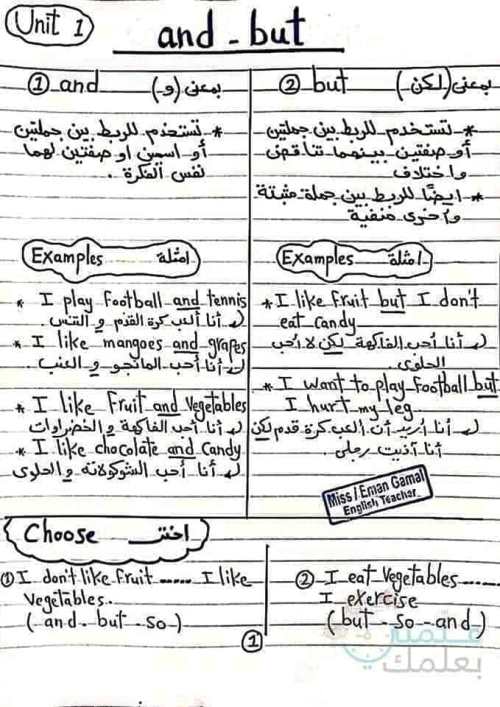 Unit 1
and - but
① and بمعنى (و)
* تستخدم للربط بين جملتين
أو اسمين او صفتين لهما
نفس الفكرة .
② but بمعنى (لكن)
* تستخدم للربط بين جملتين
أو صفتين بينهما تناقض
واختلاف
* ايضًا للربط بين جملة مثبتة
واخرى منفية
Examples امثلة
* I play football and tennis
أنا ألعب كرة القدم و التنس.
* I like mangoes and grapes
أنا أحب المانجو و العنب.
* I like fruit and vegetables
أنا أحب الفاكهة و الخضراوات
* I like chocolate and candy
أنا أحب الشوكولاتة و الحلوى
Examples امثلة
* I like fruit but I don't
eat candy
أنا أحب الفاكهة لكن لا أحب
الحلوى.
* I want to play football but
I hurt my leg
أنا أريد أن ألعب كرة قدم لكن
أنا آذيت رجلى.
Miss / Eman Gamal
English Teacher
Choose اختر
① I don't like fruit ...... I like
vegetables..
(and - but - so)
② I eat vegetables......
I exercise
(but - so - and)
①
بعلمك